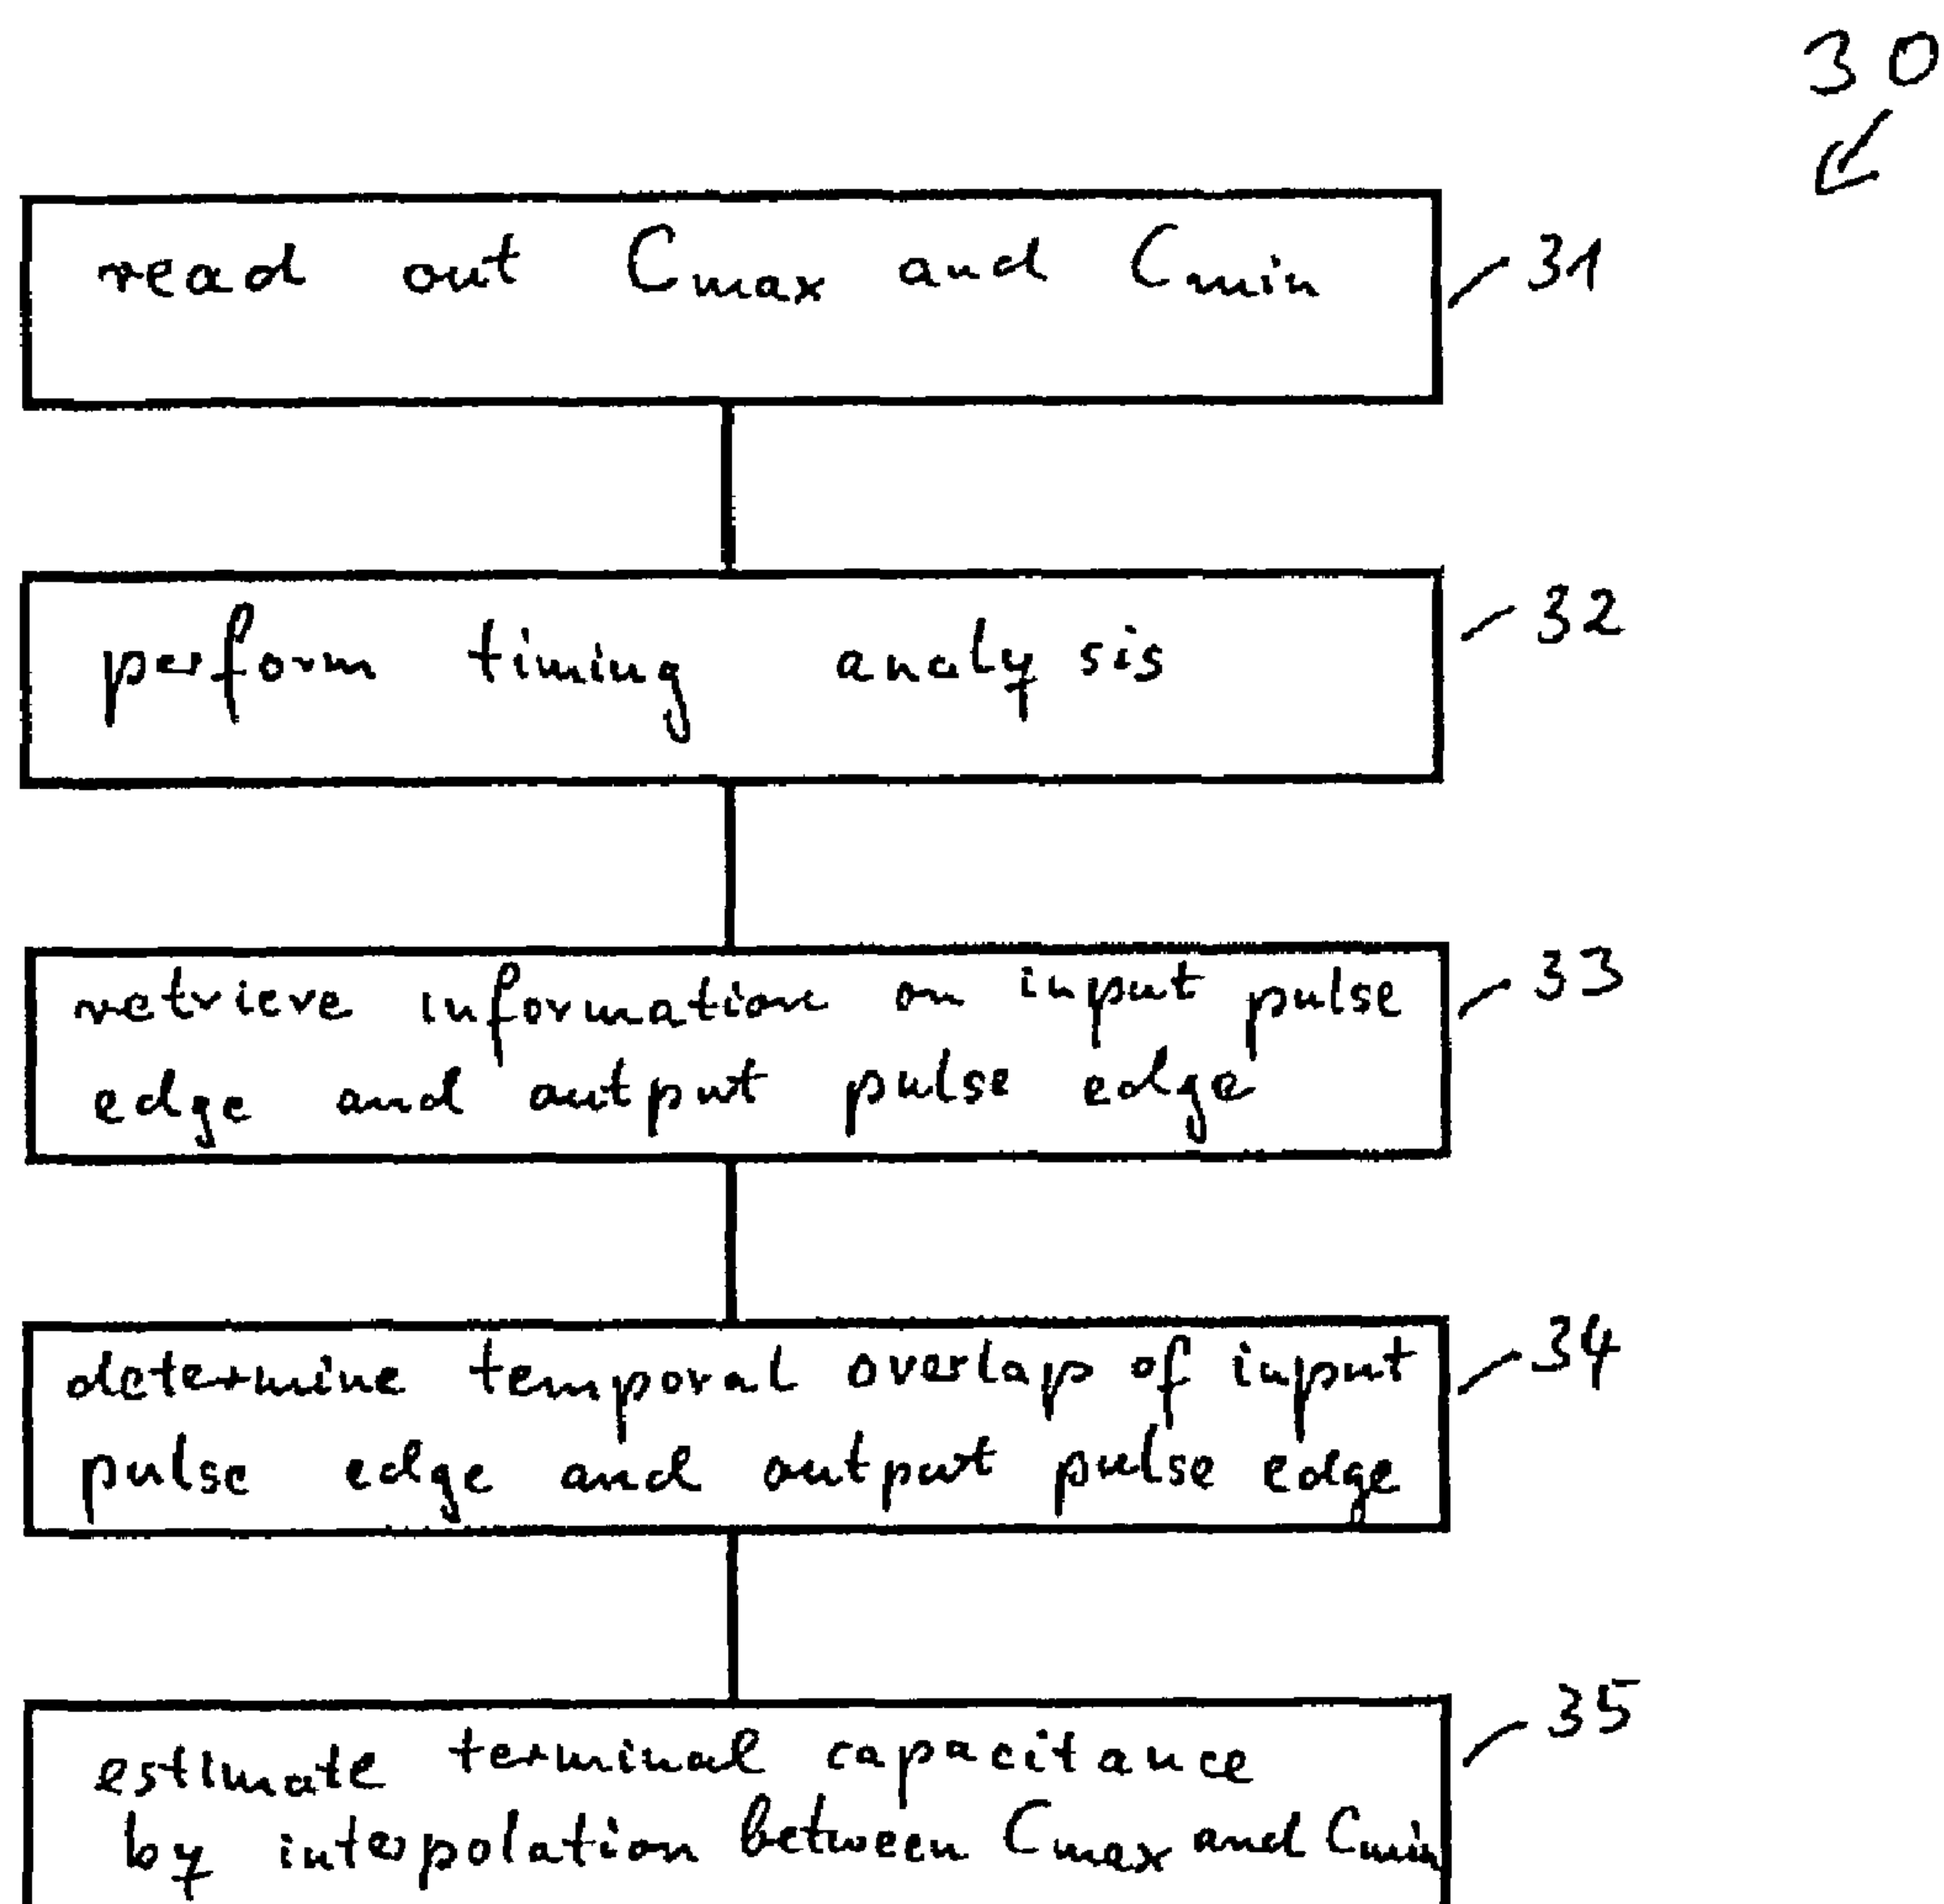 30
read out Cmax and Cmin
31
perform timing analysis
32
retrieve information on input pulse
edge and output pulse edge
33
determine temporal overlap of input
pulse edge and output pulse edge
34
estimate terminal capacitance
by interpolation between Cmax and Cmin
35